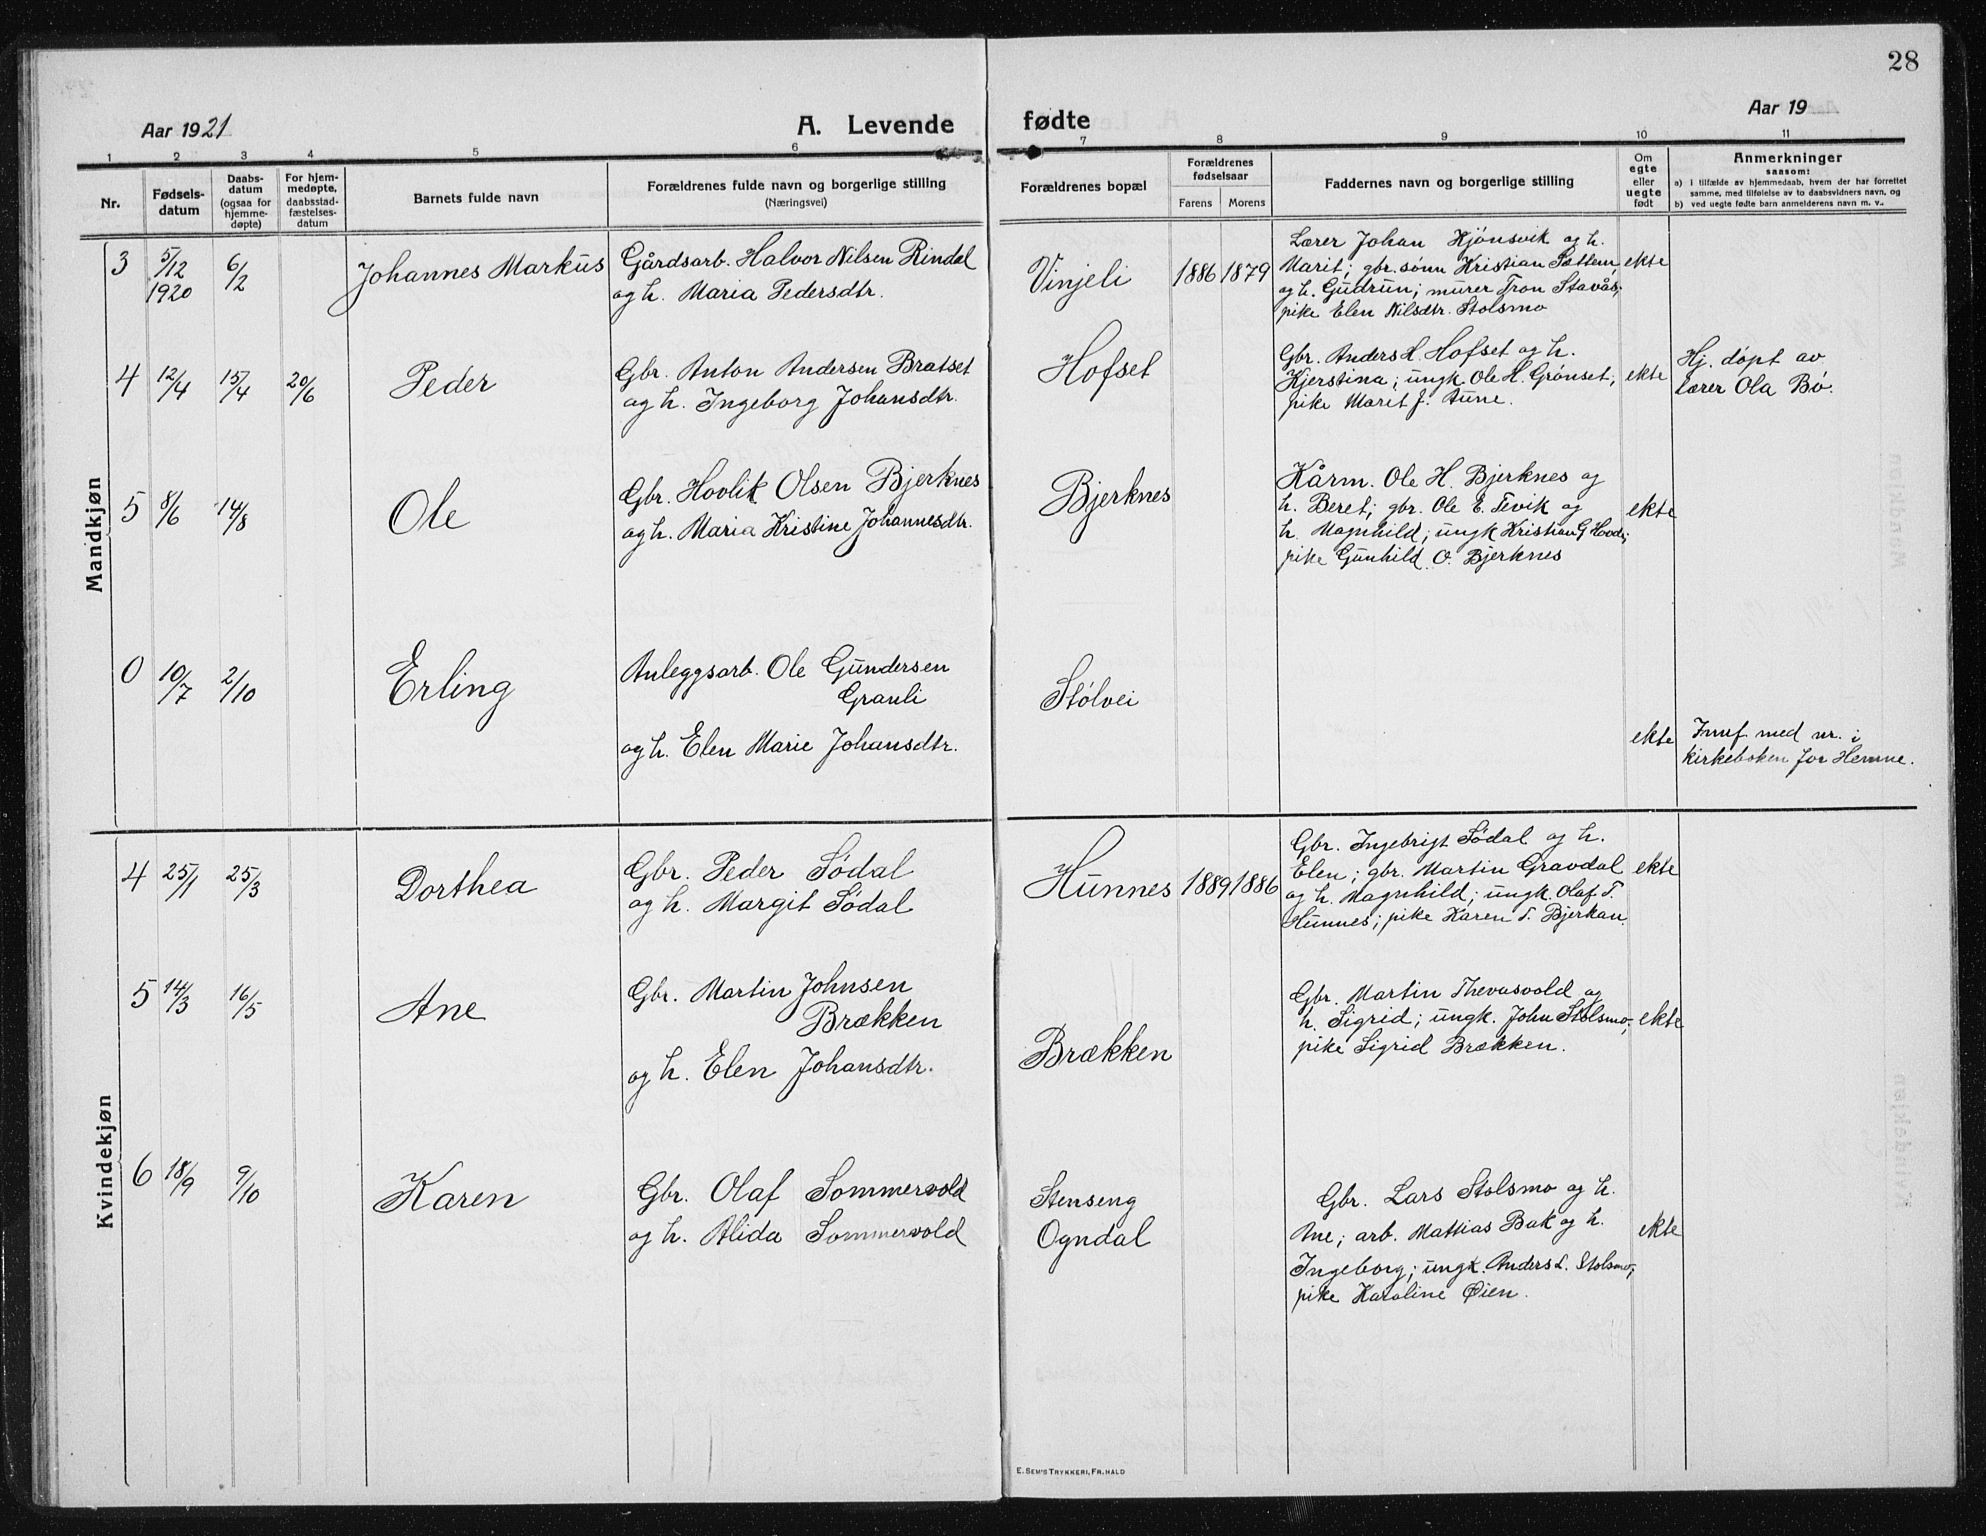 28
Aar 1921
A. Levende
fødte
Aar 19
1 2 3 4 5 6 7 8 9 10 11
Nr.
Fødsels-
datum
Daabs-
datum
(ogsaa for
hjemme-
døpte)
For hjem-
medøpte,
daabsstad-
fæstelses-
datum
Barnets fulde navn
Forældrenes fulde navn og borgerlige stilling
(Næringsvei)
Forældrenes bopæl
Forældrenes
fødselsaar
Farens Morens
Faddernes navn og borgerlige stilling
Om
egte
eller
uegte
født
Anmerkninger
saasom:
a) i tilfælde av hjemmedaab, hvem der har forrettet
samme, med tilføielse av to daabsvidners navn, og
b) ved uegte fødte barn anmelderens navn m. v..
Mandkjøn
3
5/12
1920
6/2
Johannes Markus
Gårdsarb. Halvor Nilsen Rindal
og h. Maria Pedersdtr.
Vinjeli
1886 1879
Lærer Johan Kjønsvik og h.
Marit; gbr. sønn Kristian Sættem,
og h. Gudrun; murer Tron Stavås;
pike Elen Nilsdtr. Stolsmo
ekte
4
12/4
15/4
20/6
Peder
Gbr. Anton Andersen Bratset
og h. Ingeborg Johansdtr.
Hofset
Gbr. Anders H. Hofset og h.
Kjerstina; ungk. Ole H. Grønset;
pike Marit J. Aune.
ekte
Hj. døpt av
lærer Ola Bø.
5
8/6
14/8
Ole
Gbr. Hovlik Olsen Bjerknes
og h. Maria Kristine Johannesdtr.
Bjerknes
Kårm. Ole H. Bjerknes og
h. Beret; gbr. Ole E. Tevik og
h. Magnhild; ungk Kristian G Hovde;
pike Gunhild O. Bjerknes
ekte
0
10/7
2/10
Erling
Anleggsarb. Ole Gundersen
Granli
og h. Elen Marie Johansdtr.
Stølvei
ekte
Innf. med nr. i
kirkeboken for Hemne.
Kvindekjøn
4
25/1
25/3
Dorthea
Gbr. Peder Södal
og h. Margit Södal
Hunnes
1889 1886
Gbr. Ingebrigt Södal og h.
Elen; gbr. Martin Gravdal
og h. Magnhild; ungk. Olaf T.
Hunnes; pike Karen T. Bjerkan
ekte
5
14/3
16/5
Ane
Gbr. Martin Johnsen
Brækken
og h. Elen Johansdtr.
Brækken
Gbr. Martin Thevasvold og
h. Sigrid; ungk. John Stolsmo;
pike Sigrid Brækken.
ekte
6
18/9
9/10
Karen
Gbr. Olaf Sommervold
og h. Alida Sommervold
Stenseng
Ogndal
Gbr. Lars Stolsmo og h.
Ane; arb. Mattias Bak og h.
Ingeborg; ungk. Anders L. Stolsmo;
pike Karoline Øien.
ekte
E. SEM'S TRYKKERI, FR.HALD